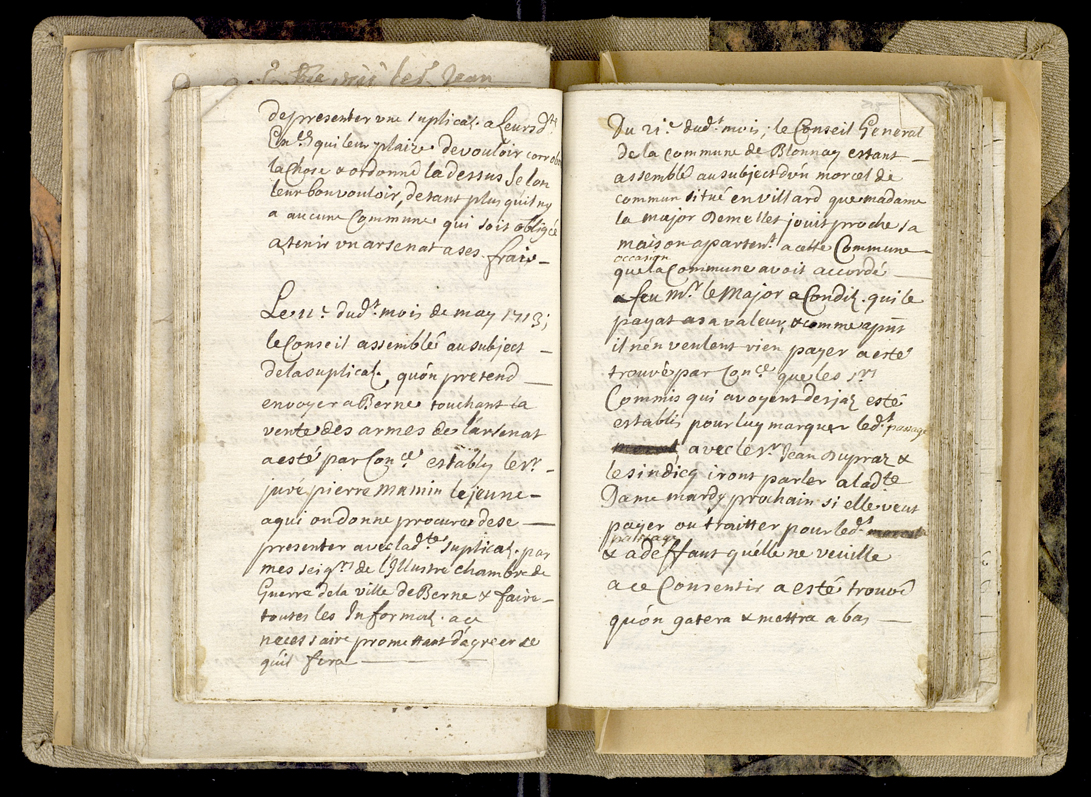 de presenter une suplicaõn. a leursd.tes
Exc.es qui leur plaise de vouloir
la chose & ordonné la dessus selon
leur bon vouloir, detant plus qu'il ny
a aucune Commune qui soit obligée
a tenir un arsenat a ses frais -
Le 11.e dud.t mois de may 1713;
le Conseil assemblé au subject -
de la suplicaõn, quón pretend -
envoyer a Berne touchant la
vente des armes de l'arsenat
a esté par Con.cel establis le sr. -
juré pierre mamin le jeune -
a qui on donne procure de se -
presenter avec lad.te suplicaõn. par
mes seig.rs de l'Illustre chambre de
Guerre de la ville de Berne & faire -
toutes les Informaõn. a ce
necessaire promettant d'agreer ce
quil fera -
Du 21.e dud.t mois; le Conseil General
de la commune de Blonnay estant -
assemblé au subject d'un morcel de
commun situé en villard que madame
la major Demellet jouit proche sa
maison aparten.t a cette Commune -
occasion
que la Commune avoit accordé -
a feu m.r le Major a Condiõn. qui le
payat a sa valeur, & comme apñt
il n'en veulent rien payer a esté
trouvé par Con.cel que les srs
Commis qui avoyent desjaz esté
establis pour luy marquer led.t passage
avec le sr. Jean Dupraz &
le sindicq iront parler a ladte
Dame mardy prochain si elle veut
payer ou traitter pour led.t
passage
& a deffaut quélle ne veuille
a ce Consentir a esté trouvé
quón gatera & mettra a bas -